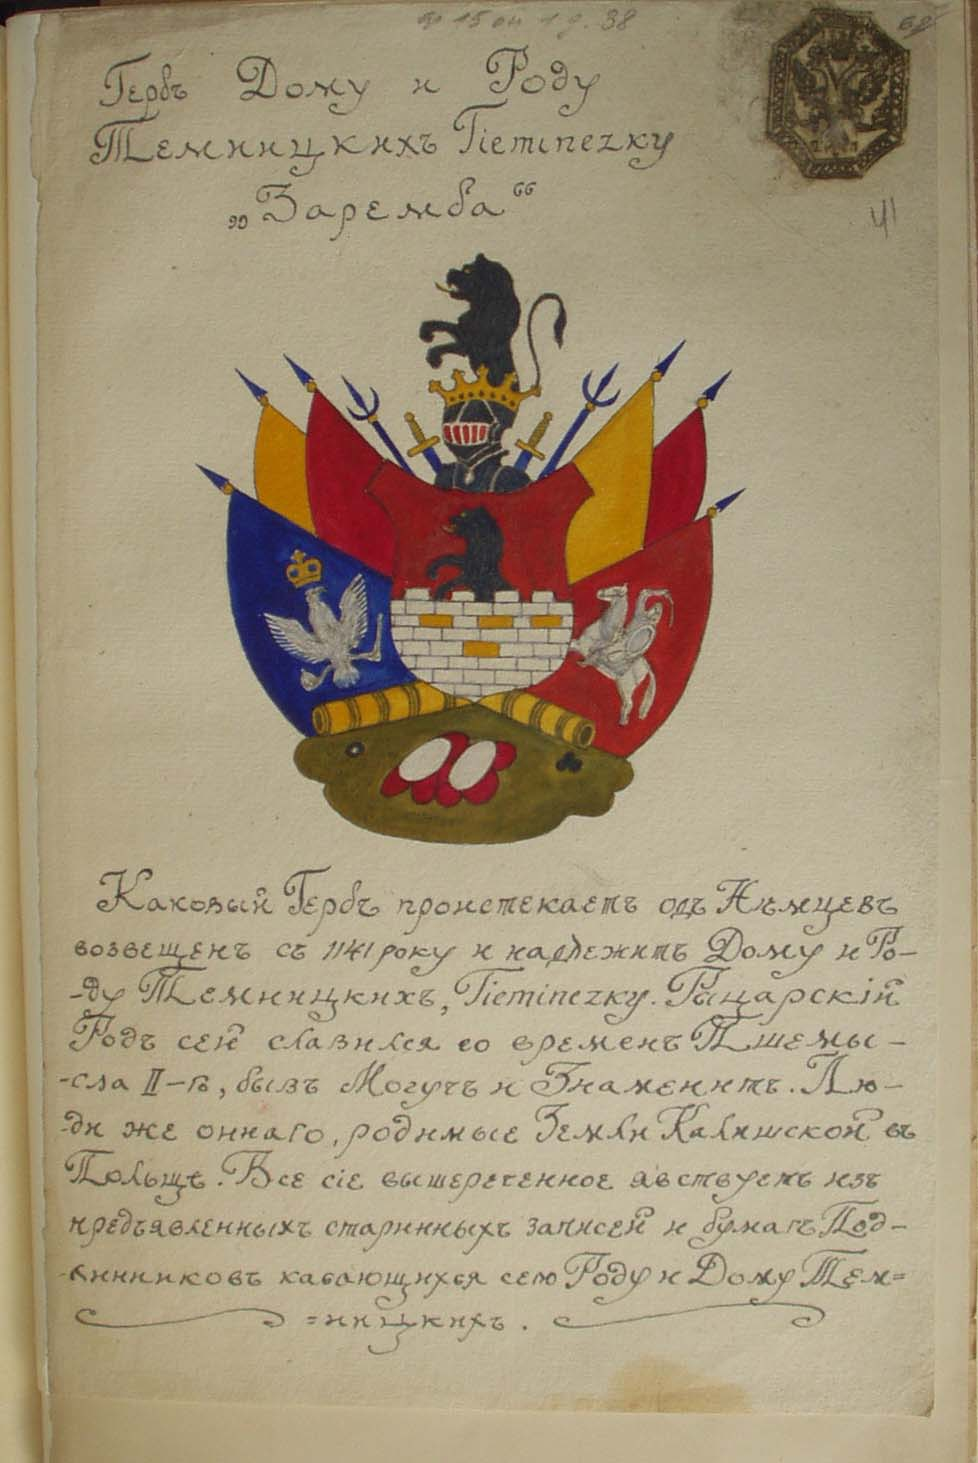 Гербъ Дому и Роду
Темницкихъ Tieminezky
„Заремба“
41
Каковый Гербъ проистекаетъ одъ Нѣмцевъ
возвещенъ съ 1141 року и надлежитъ Дому и Ро-
-ду Темницкихъ, Tieminezky. Рыцарскій
Родъ сей славился со временъ Пшемы-
-сла II-го, бывъ Могучъ и Знаменитъ. Лю-
-ди же оннаго, родимые Земли Калишской въ
Польщѣ. Все сіе вышереченное явствуетъ изъ
предъявленныхъ старинныхъ записей и бумагъ Под-
-линниковъ касающихся сею Роду и Дому Тем=
=ницкихъ.